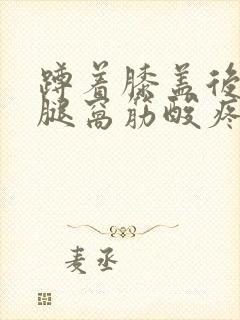 蹲着膝盖後
腿窝筋酸疼
麦丞